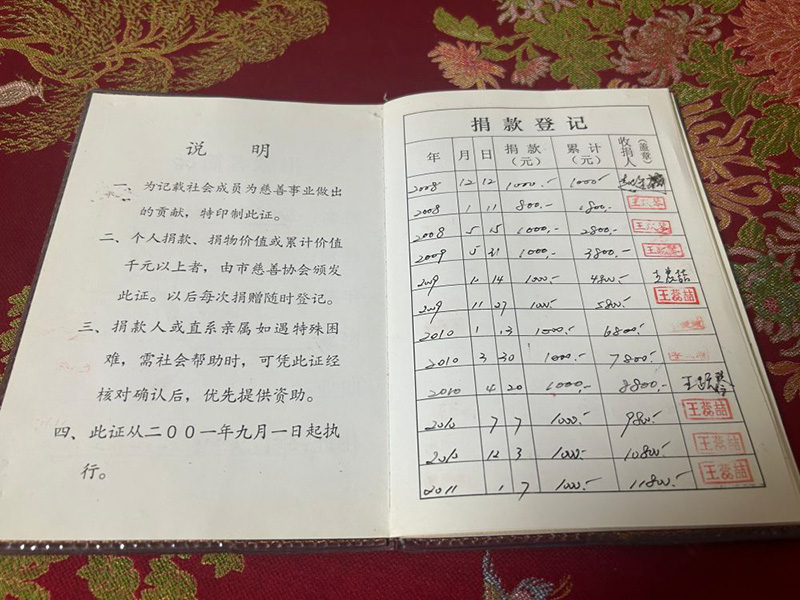 说 明
一、为记载社会成员为慈善事业做出
的贡献，特印制此证。
二、个人捐款、捐物价值或累计价值
千元以上者，由市慈善协会颁发
此证。以后每次捐赠随时登记。
三、捐款人或直系亲属如遇特殊困
难，需社会帮助时，可凭此证经
核对确认后，优先提供资助。
四、此证从二〇〇一年九月一日起执
行。
捐款登记
年 月 日 捐款(元) 累计(元) 收捐人(盖章)
2008 12 12 1000.- 1000.-
2008 1 11 800.- 1800.-
2008 5 15 1000.- 2800.-
2009 5 31 1000.- 3800.-
2009 14 1000.- 4800.- 王蕊喆
2009 11 27 1000.- 5800.- 王蕊喆
2010 1 13 1000.- 6800.-
2010 3 30 1000.- 7800.-
2010 4 20 1000.- 8800.-
2010 7 7 1000.- 9800.- 王蕊喆
2010 12 3 1000.- 10800.- 王蕊喆
2011 1 7 1000.- 11800.- 王蕊喆